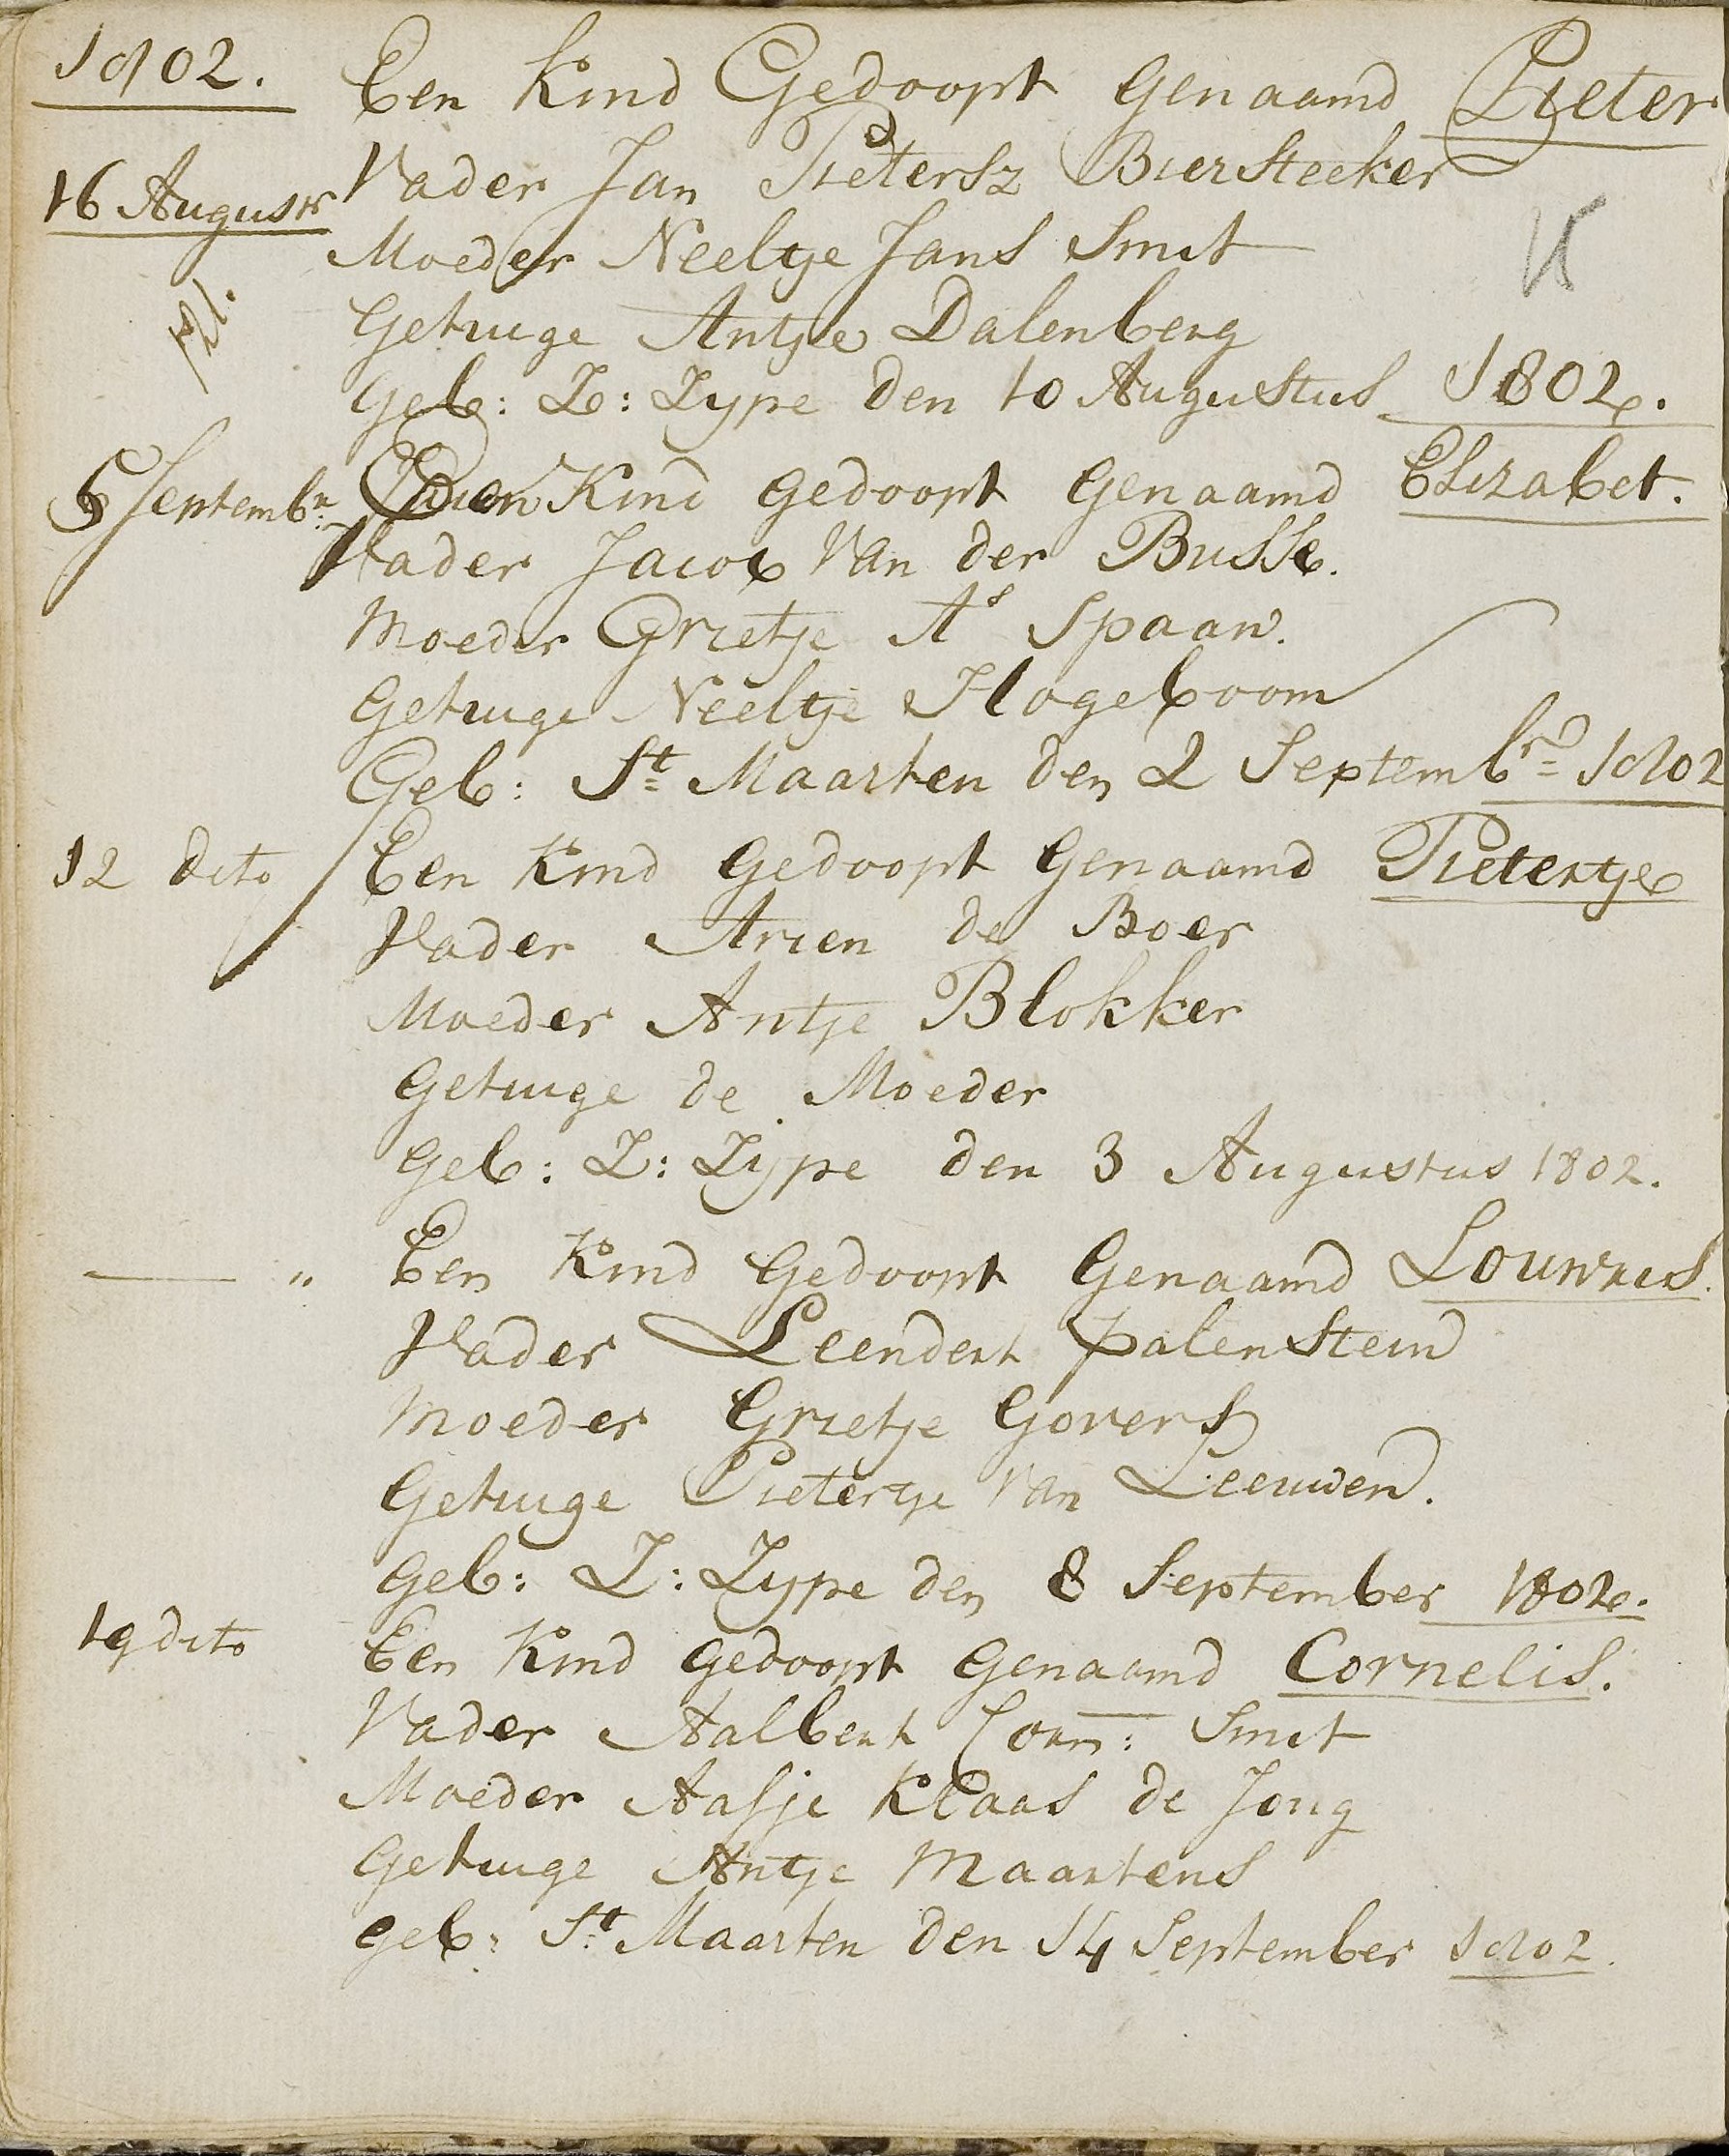 1802.
Een Kind Gedoopt Genaamd Pieter
16 Augusts
Vader Jan Pietersz Biersteeker
Moeder Neeltje Jans Smit
Getuige Antje Dalenberg
Geb: Z: Zype den 10 Augustus 1802.
5 Septembr: Een Kind Gedoopt Genaamd Elizabet.
Vader Jacob Van der Busse.
Moeder Grietje As Spaan.
Getuige Neeltje Hogeboom
Geb: St Maarten den 2 Septembr 1802
12 dito Een Kind Gedoopt Genaamd Pietertje
Vader Arien de Boer
Moeder Antje Blokker
Getuige de Moeder
Geb: Z: Zype den 3 Augustus 1802.
— " Een Kind Gedoopt Genaamd Louwris.
Vader Leendert Palenstein
Moeder Grietje Govers
Getuige Pietertje Van Leeuwen.
Geb: Z: Zype den 8 September 1802.
19 dito Een Kind Gedoopt Genaamd Cornelis.
Vader Aalbert Corn: Smit
Moeder Aafje Klaas de Jong
Getuige Antje Maartens
geb: St Maarten den 14 September 1802.